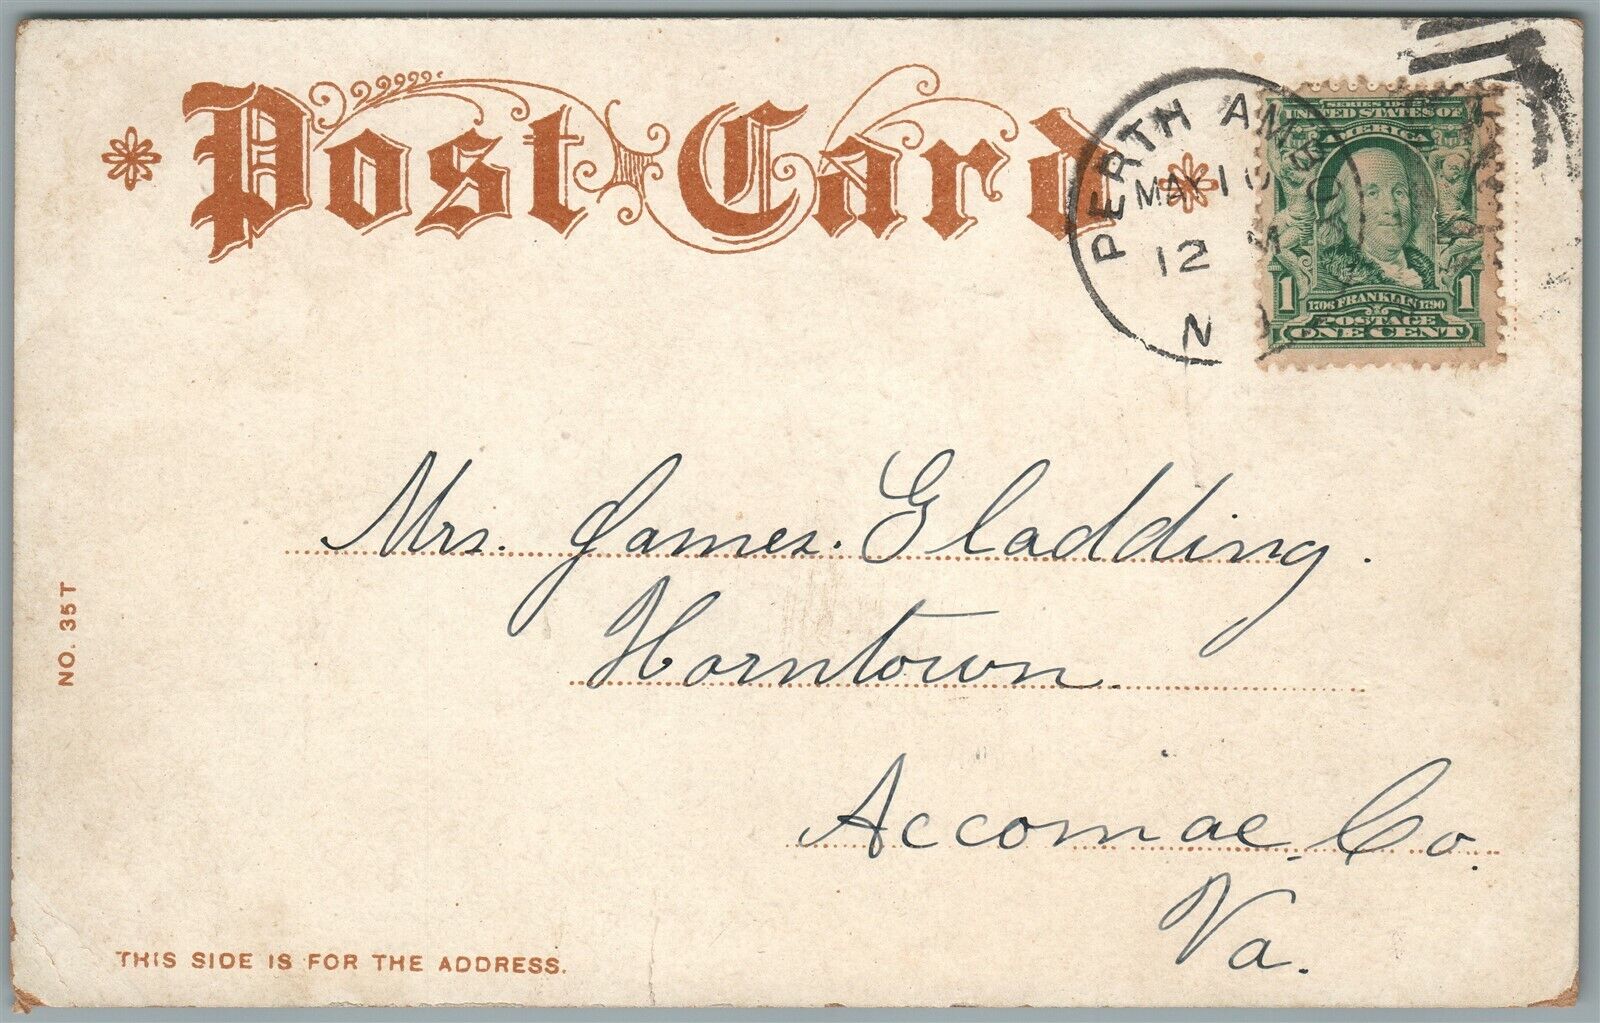 Post Card
PERTH AM
MAR 10
12 M
N
SERIES 1902
UNITED STATES OF
AMERICA
1 1706 FRANKLIN 1790 1
POSTAGE
ONE CENT
Mrs. James. Gladding.
Horntown.
Accomac. Co.
Va.
NO. 35T
THIS SIDE IS FOR THE ADDRESS.